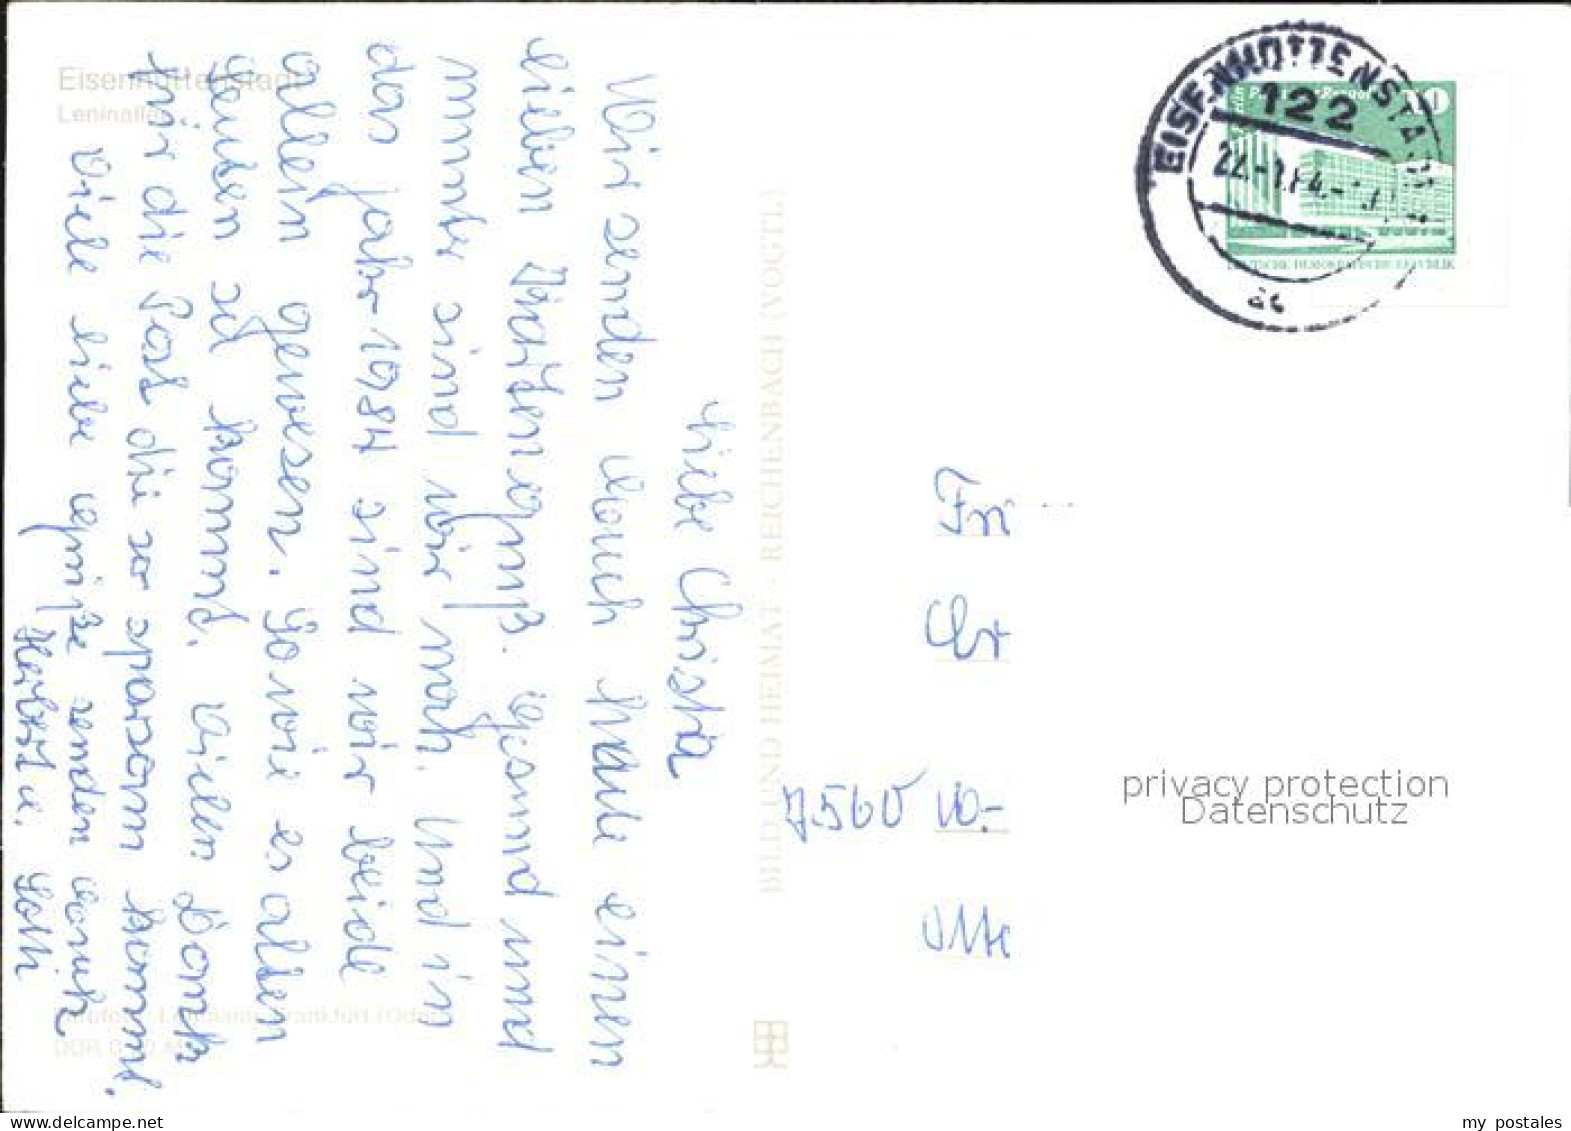 Eisenhüttenstadt
Leninallee
Liebe Christa
Wir senden euch heute einen
lieben Kartengruß. Gesund und
munter sind wir noch. Und in
das Jahr 1984 sind wir beide
allein gewesen. So wie es alten
Leuten so kommt. Vielen Dank
für die Post die so sparsam kommt.
Viele liebe Grüße senden euch
Herbert u. Lotti
DDR
BILD UND HEIMAT · REICHENBACH (VOGTL)
EISENHÜTTENSTADT
122
ac
DEUTSCHE DEMOKRATISCHE REPUBLIK
7560 W.-
privacy protection
Datenschutz
my postales